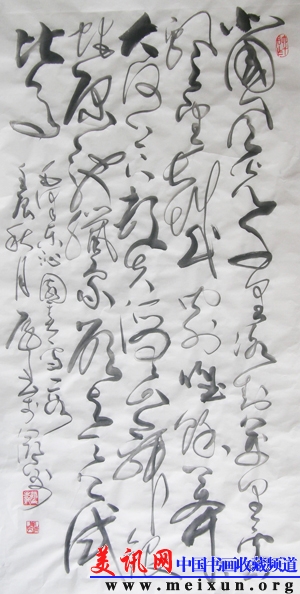 北国风光千里冰封万里雪
飘望长城内外惟余莽莽
大河上下顿失滔滔山舞银
蛇原驰蜡象欲与天公试
比高
毛泽东沁园春雪一段
壬辰秋月
美讯网 中国书画收藏频道
www.meixun.org